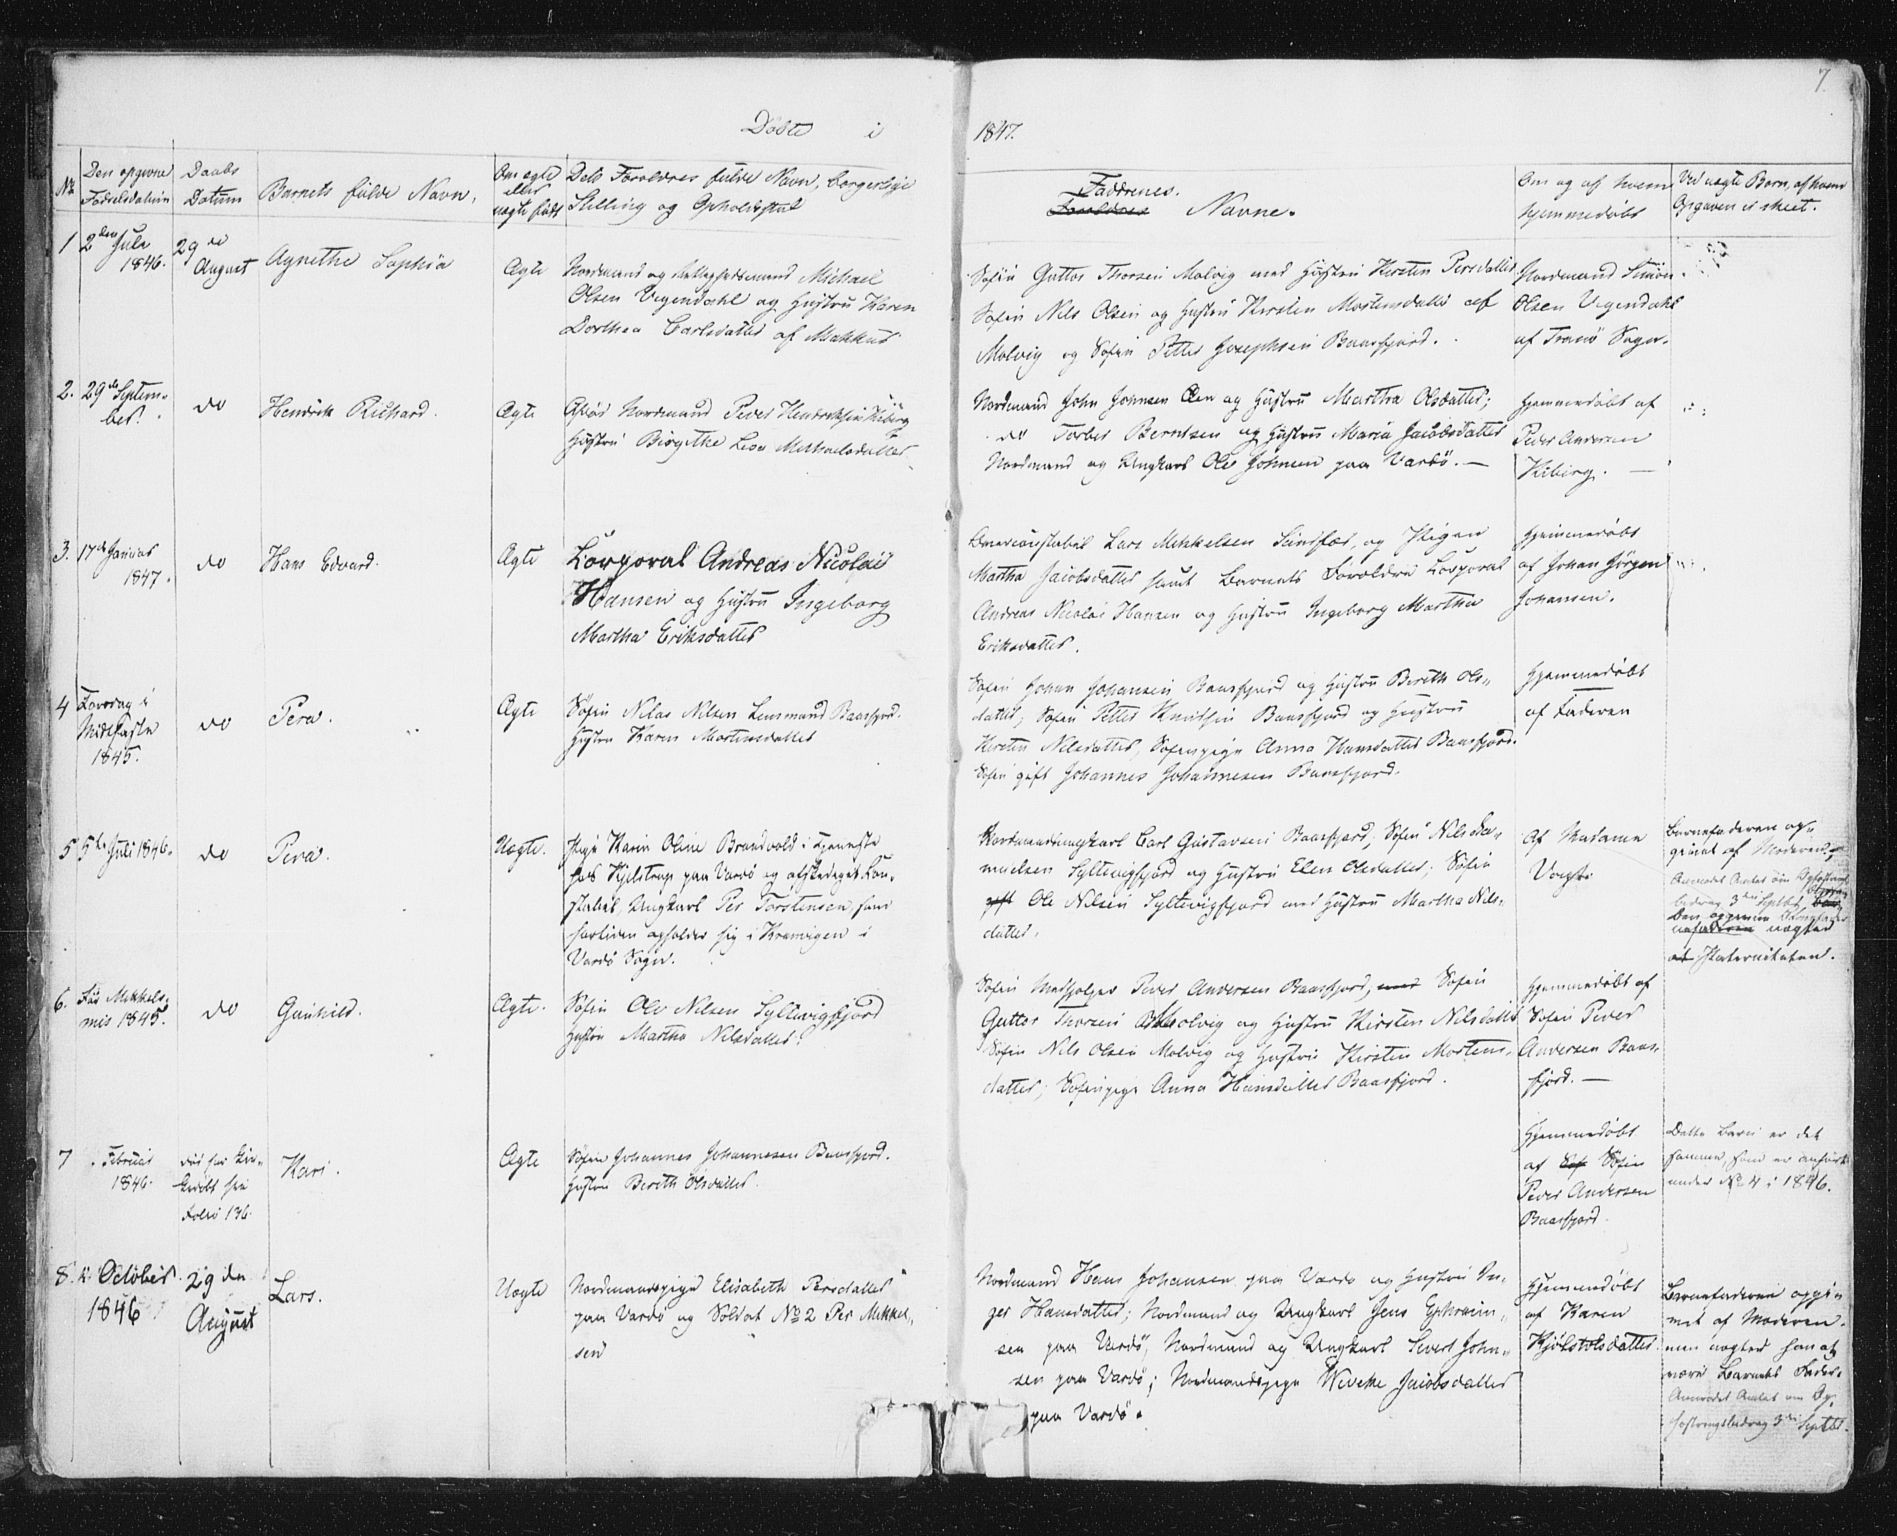 7.
Døbte i 1847.
No
Den opgivne
Fødselsdatum
Daabs
Datum
Barnets fulde Navn.
Om ægte
eller
uægte født
Dets Forældres fulde Navn, borgerlige
Stilling og Opholdssted
Faddrenes
Forældres Navne.
Om og af hvem
hjemmedøbt
Ved uægte Børn, af hvem
Opgaven er skeet.
1
2den Juli
1846.
29de
August
Agnethe Sophia
Ægte
Nordmand og Michael
Olsen Vegendahl og Hustru Karen
Dorthea Carlsdatter af Makkur
Søfin Guttor Thorsen Molvig med Hustru Kirsten Persdatter
Søfin Nils Olsen og Hustru Kirsten Mortensdatter af
Molvig og Søfin Petter Josephsen Baasfjord.
Nordmand Simon
Olsen Vegendahl
af Tranø Sogn.
2.
29de Septem-
ber.
do
Hendrik Richard.
Ægte
Nordmand Peder Hendriksen Kiberg
Hustru Birgithe Lisa Michaelsdatter
Nordmand John Johnsen Oen og Hustru Martha Olsdatter;
do Torber Berntsen og Hustru Maria Jacobsdatter
Nordmand og Ungkarl Ole Johnsen paa Vardö. —
Hjemmedøbt af
Peder Andersen
Kiberg. —
3.
17de Januar
1847.
do
Hans Edvard.
Ægte
Korporal Andreas Nicolai
Hansen og Hustru Ingeborg
Martha Eriksdatter
Lars Mikkelsen Sundfær, og Pigen
Martha Jacobsdatter samt Barnets Forældre Korporal
Andreas Nicolai Hansen og Hustru Ingeborg Martha
Eriksdatter.
Hjemmedøbt
af Johan Jörgen
Johansen.
4
Løverdag i
Midtfaste
1845.
do
Pera.
Ægte
Søfin Nilas Nilsen Lensmand Baasfjord.
Hustru Karen Mortensdatter
Søfin Johan Johansen Baasfjord og Hustru Bereth Ols-
datter, Søfin Petter Knudsen Baasfjord og Hustru
Kirsten Nilsdatter, Søfinpige Anna Hansdatter Baasfjord.
Søfin gift Johannes Johannesen Baasfjord.
Hjemmedøbt
af Faderen
5
5te Juli 1846.
do
Peva.
Uægte.
Pige Karin Oline Brandvold i Tjeneste
hos Kjelstrup paa Vardö og afskediget Kon-
stabel, Ungkarl Per Torstensen, som
for tiden opholder sig i Kramvigen i
Vardö Sogn.
Nordmandsungkarl Carl Gustavsen Baasfjord, Søfin Nils Sa-
muelsen Syltevigfjord og Hustru Elen Olsdatter; Søfin
gift Ole Nilsen Syltevigfjord med Hustru Martha Nils-
datter.
Af Madame
Vogt
Barnefaderen op-
givet af Moderen;
Anmodet Amtet om Opfostrings-
bidrag 3die Septbr.
Den opgivne Barnefader
nægter
Paternitæten.
6.
Før Mikkels-
mis 1845.
do
Gunhild.
Ægte.
Søfin Ole Nilsen Syltevigfjord
Hustru Martha Nilsdatter.
Søfin Medhjelper Peder Andersen Baasfjord, med Søfin
Guttor Thorsen Molvig og Hustru Kirsten Nilsdatter
Søfin Nils Olsen Molvig og Hustru Kirsten Mortens-
datter; Søfinpige Anna Hansdatter Baasfjord.
Hjemmedøbt af
Søfin Peder
Andersen Baas-
fjord. —
7
Februar
1846.
Folio 136.
Kari.
Ægte
Søfin Johannes Johannesen Baasfjord.
Hustru Bereth Olsdatter.
Hjemmedøbt
af Søf Søfin
Peder Andersen
Baasfjord.
Dette Barn er det
samme, som er anført
under No 4 i 1846.
8.
October
1846
29de
August
Lars.
Uægte
Nordmandspige Elisabeth Persdatter
paa Vardö og Soldat No 2 Per Mikkel-
sen
Nordmand Hans Johansen paa Vardö og Hustru In-
ger Hansdatter; Nordmand og Ungkarl Jens Ephraim-
sen paa Vardö, Nordmand og Ungkarl Sivert John-
sen paa Vardö; Nordmandspige Wivike Jacobsdatter
paa Vardö.
Hjemmedøbt
af Karen
Kjølstolsdatter
Barnefaderen opgi-
vet af Moderen.
men nægter han at
være Barnets Fader.
Anmodet Amtet om Op-
fostringsbidrag 3die Septbr.